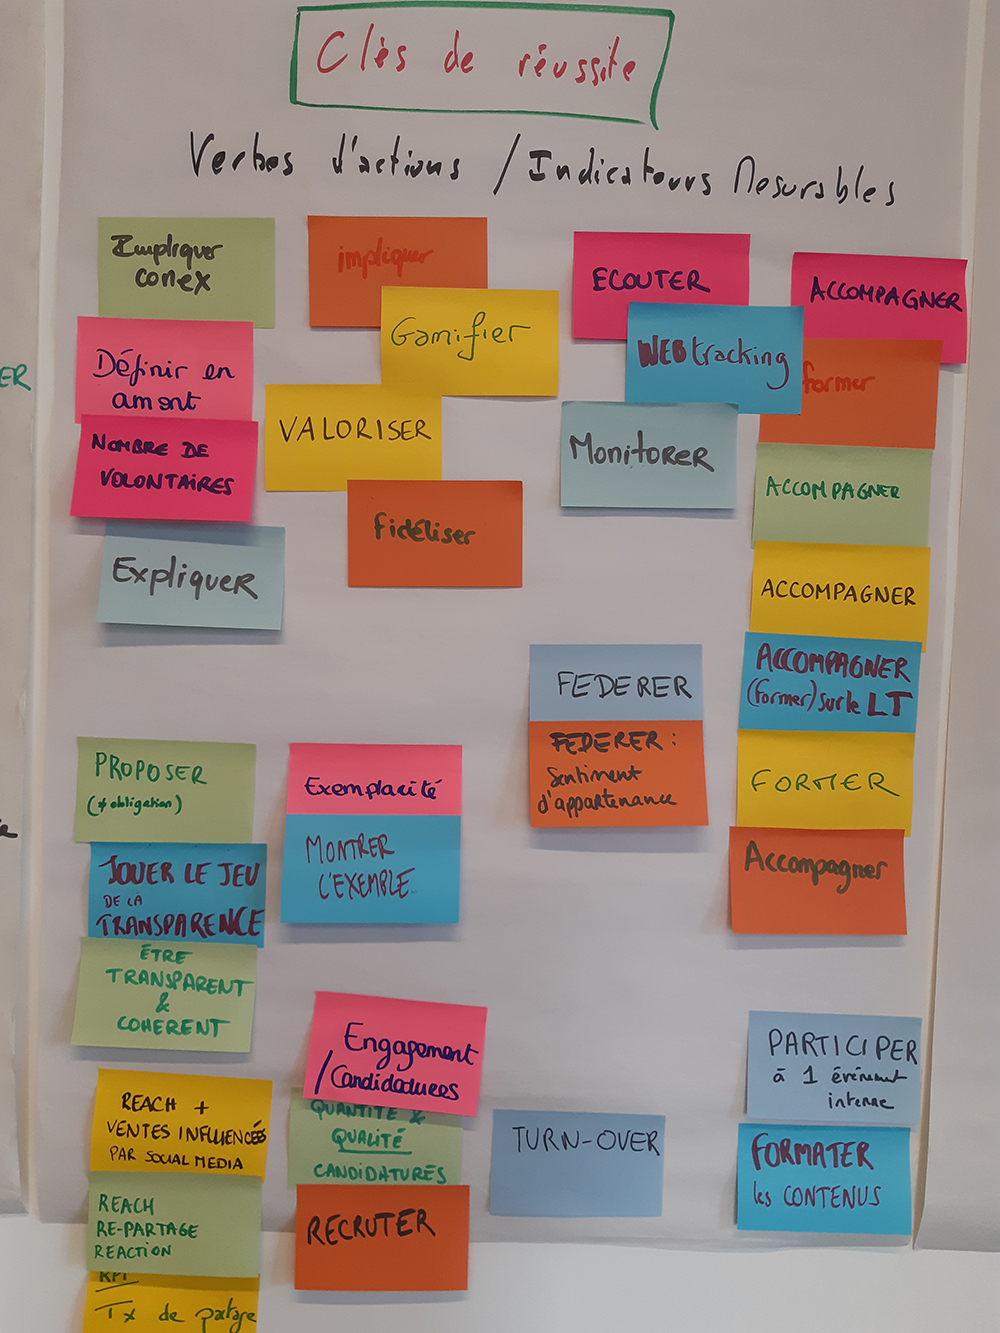 Clés de réussite
Verbes d'actions / Indicateurs Mesurables
Impliquer
comex
impliquer
Gamifier
ECOUTER
ACCOMPAGNER
WEBtracking
former
Définir en
amont
NOMBRE DE
VOLONTAIRES
VALORISER
Monitorer
ACCOMPAGNER
Fidéliser
Expliquer
ACCOMPAGNER
ACCOMPAGNER
(former) sur le LT
FEDERER
FEDERER :
Sentiment
d'appartenance
FORMER
Accompagner
PROPOSER
(≠ obligation)
JOUER LE JEU
DE LA
TRANSPARENCE
ÊTRE
TRANSPARENT
&
COHERENT
Exemplarité
MONTRER
L'EXEMPLE
Engagement
/Candidatures
QUANTITÉ &
QUALITÉ
CANDIDATURES
RECRUTER
TURN-OVER
PARTICIPER
à 1 événement
interne
FORMATER
les CONTENUS
REACH +
VENTES INFLUENCÉES
PAR SOCIAL MEDIA
REACH
RE-PARTAGE
REACTION
KPI
Tx de partage
ER